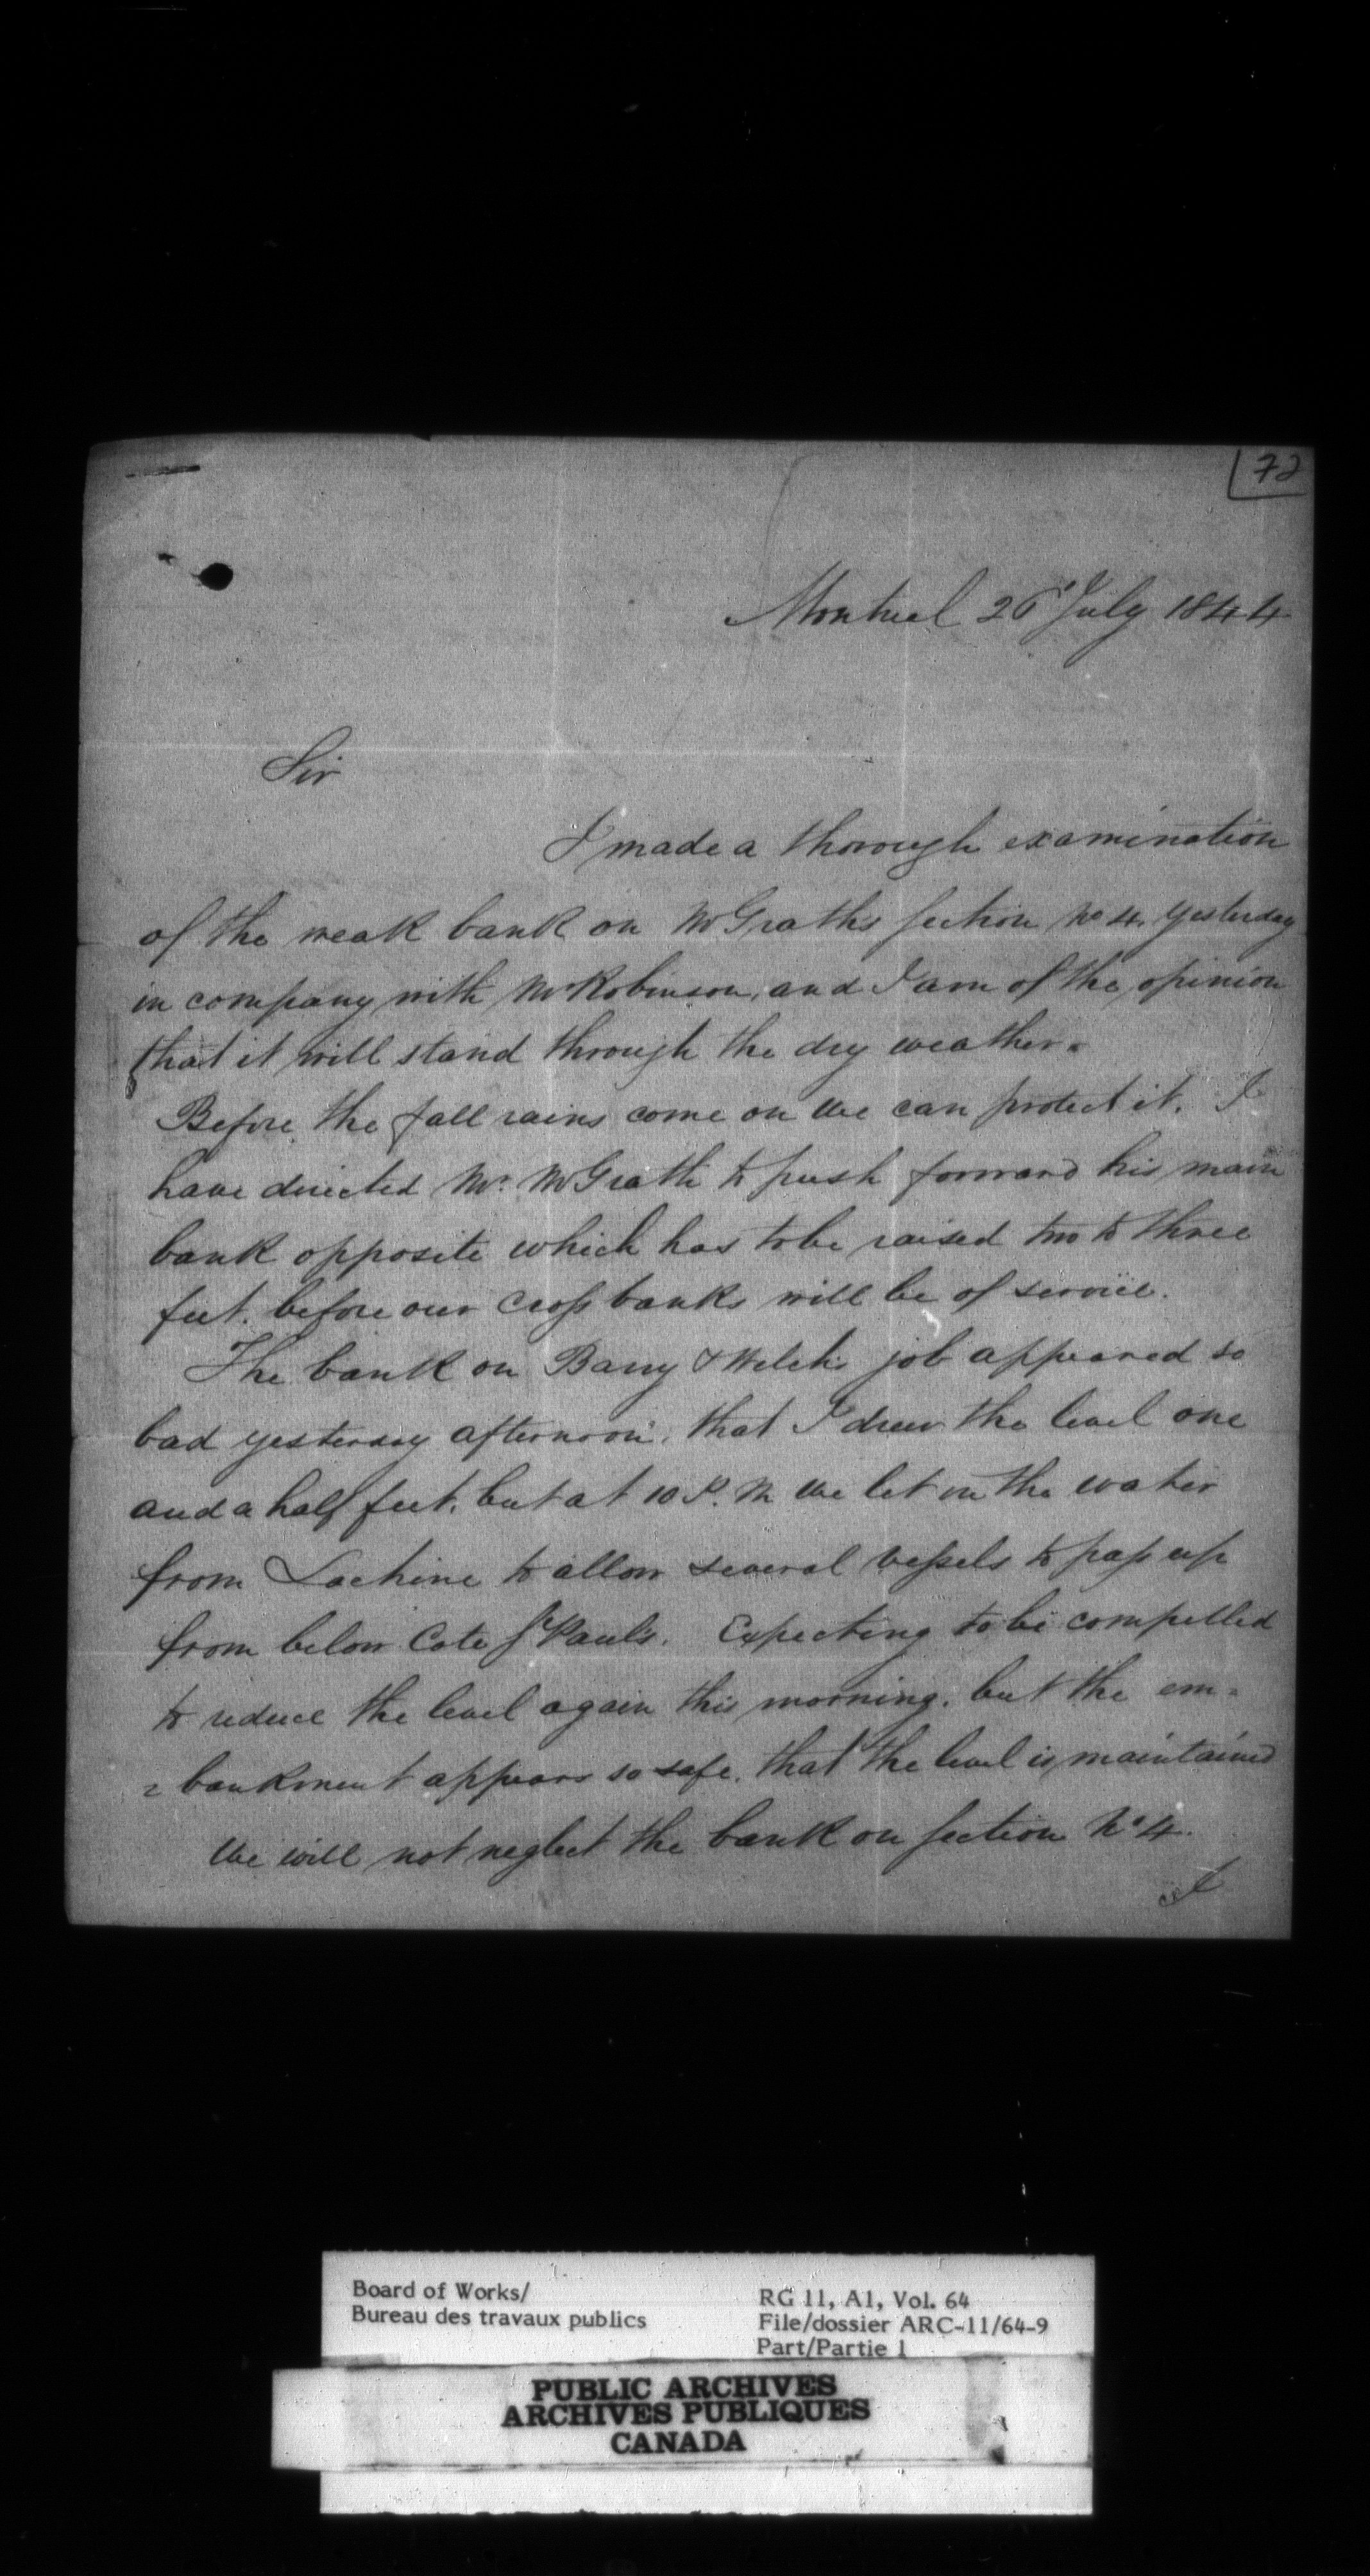 72
Montreal 26 July 1844
Sir
I made a thorough examination
of the weak bank on McGrath's section No 4. yesterday
in company with Mr Robinson, and I am of the opinion
that it will stand through the dry weather.
Before the fall rains come on we can protect it. I
have directed Mr. McGrath to push forward his main
bank opposite which has to be raised two to three
feet. before our cross banks will be of service.
The bank on Barry & Welch's job appeared so
bad yesterday afternoon, that I drew the level one
and a half feet. but at 10 P. M we let on the water
from Lachine to allow several vessels to pass up
from below Cote St Paul's. Expecting to be compelled
to reduce the level again this morning. but the em=
=bankment appears so safe. that the level is maintained
We will not neglect the bank on section No 4.
I
Board of Works/
Bureau des travaux publics
RG 11, A1, Vol. 64
File/dossier ARC-11/64-9
Part/Partie 1
PUBLIC ARCHIVES
ARCHIVES PUBLIQUES
CANADA